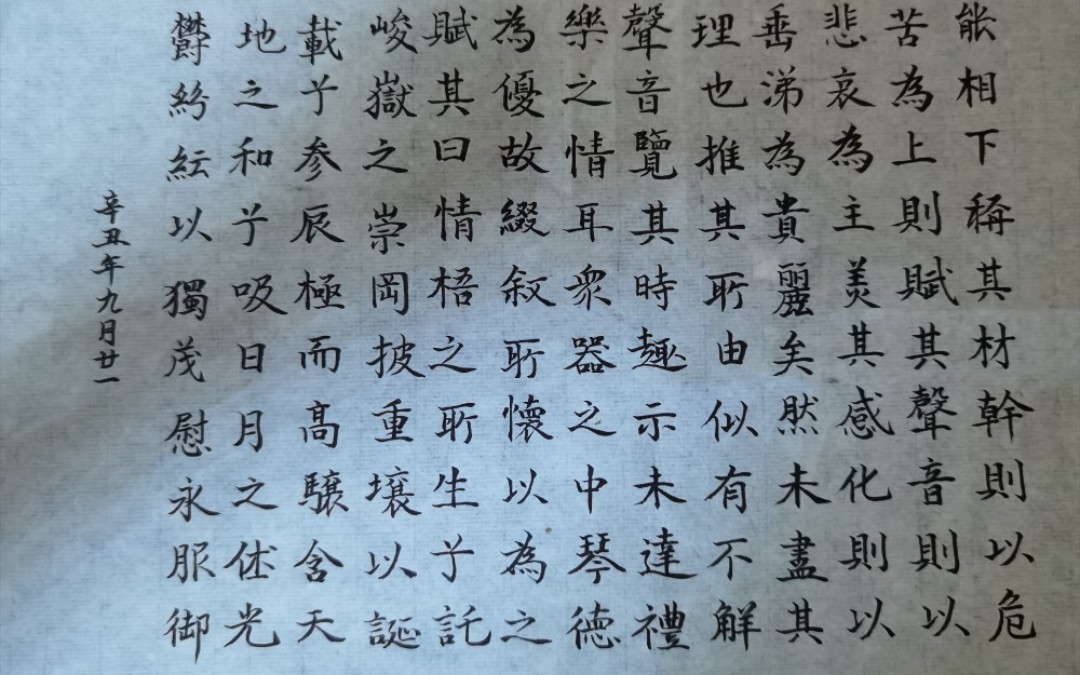 能相下稱其材幹則以危
苦為上則賦其聲音則以
悲哀為主美其感化則以
垂涕為貴麗矣然未盡其
理也推其所由似有不解
聲音覽其時趣示未達禮
樂之情耳眾器之中琴德
為優故綴叙所懷以為之
賦其曰情梧之所生兮託
峻嶽之崇岡披重壤以誕
載兮参辰極而高驤含天
地之和兮吸日月之休光
鬱紛紜以獨茂慰永服御
辛丑年九月廿一